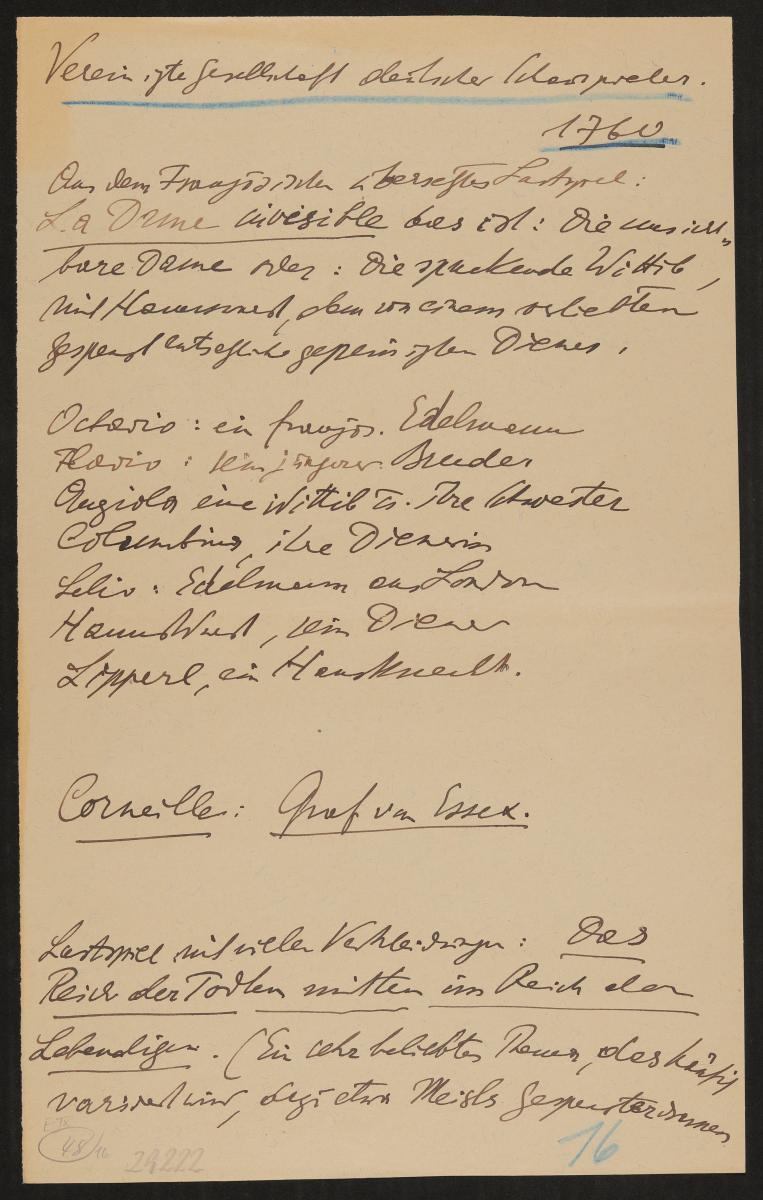 Vereinigte Gesellschaft deutscher Schauspieler.
1760
Aus dem Französischen übersetztes Lustspiel:
La Dame invisible das ist: Die unsicht-
bare Dame oder: Die spuckende Wittib,
mit Hannswurst, dem von einem verliebten
Gespenst entsetzlich gepeinigten Diener.
Octavio: ein französ. Edelmann
Flavio: sein jüngerer Bruder
Angiola eine Wittib u. ihre Schwester
Columbina, ihre Dienerin
Lelio: Edelmann aus London
HannsWurst, sein Diener
Lipperl, ein Hausknecht.
Corneille: Graf von Essex.
Lustspiel mit vielen Verkleidungen: Das
Reich der Todten mitten im Reich der
Lebendigen. (Ein sehr beliebtes Thema, das häufig
variiert wird, etwa Meisls Gespenster
48/16
24222
16